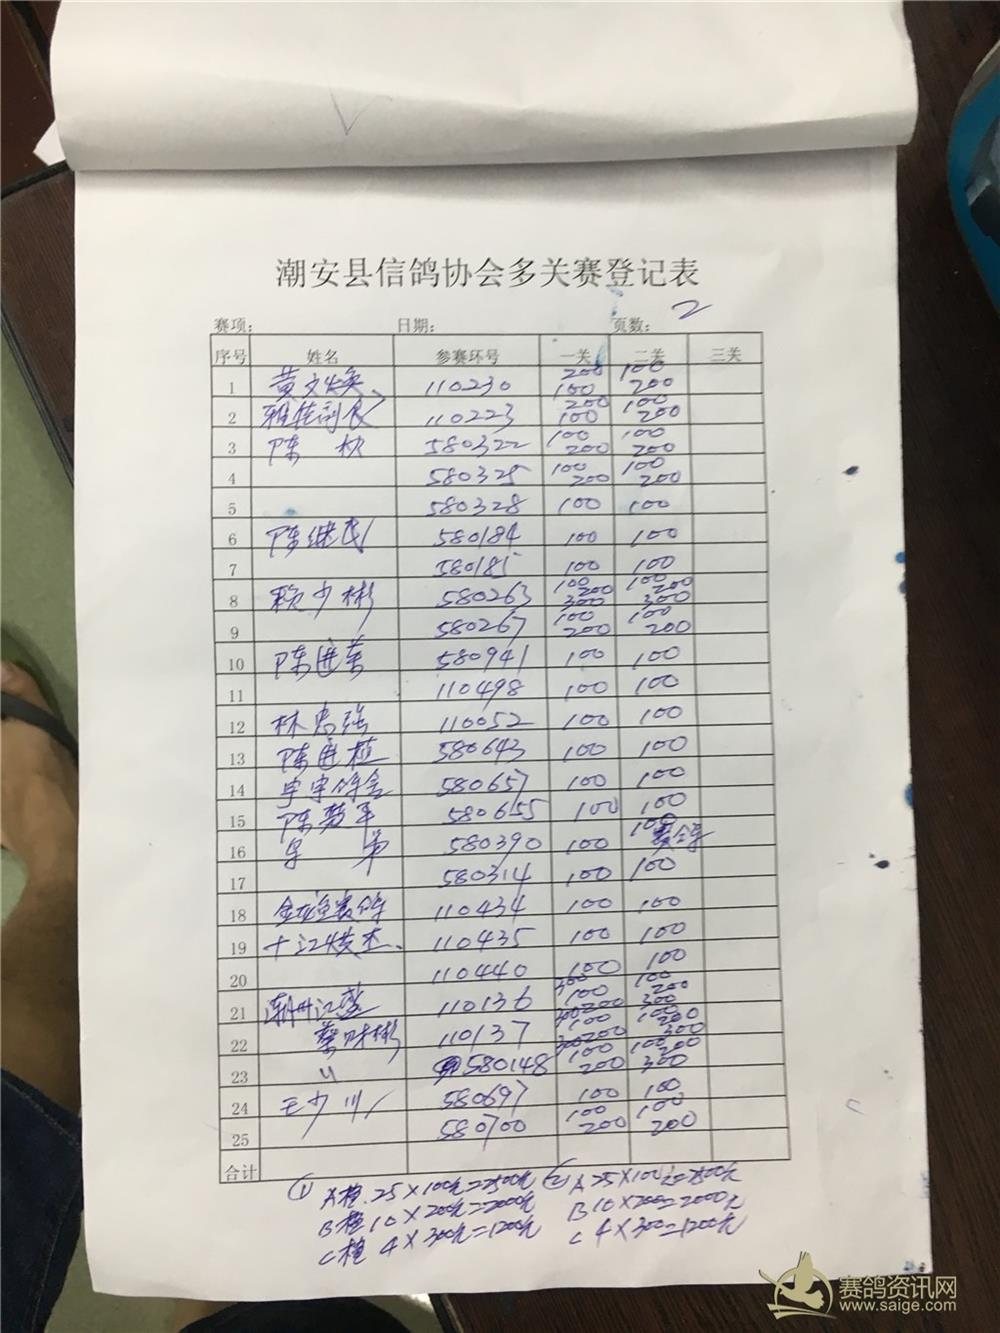 潮安县信鸽协会多关赛登记表
赛项： 日期： 页数： 2
序号 姓名 参赛环号 一关 二关 三关
1 黄文焕 110230 200 100 100 200
2 110223 200 100 100 200
3 陈 580322 100 200 100 200
4 580325 100 200 100 200
5 580328 100 100
6 陈继民 580184 100 100
7 580185 100 100
8 赖少彬 580263 100 200 300 100 200 300
9 580267 100 200 100 200
10 陈进荣 580941 100 100
11 110498 100 100
12 林忠强 110052 100 100
13 陈进植 580643 100 100
14 580657 100 100
15 陈 580655 100 100
16 580390 100 100 赛鸽
17 580314 100 100
18 赛鸽 110434 100 100
19 110435 100 100
20 110440 100 100
21 潮州江 110136 300 100 200 100 200 300
22 蔡财彬 110137 300 100 200 100 200 300
23 〃 580148 300 100 200 100 200 300
24 王少川 580697 100 100
25 580700 100 200 100 200
合计
① A档 25×100元=2500元 ② A 25×100元=2500元
B档 10×200元=2000元 B 10×200=2000元
C档 4×300元=1200元 C 4×300=1200元
赛鸽资讯网
www.saige.com